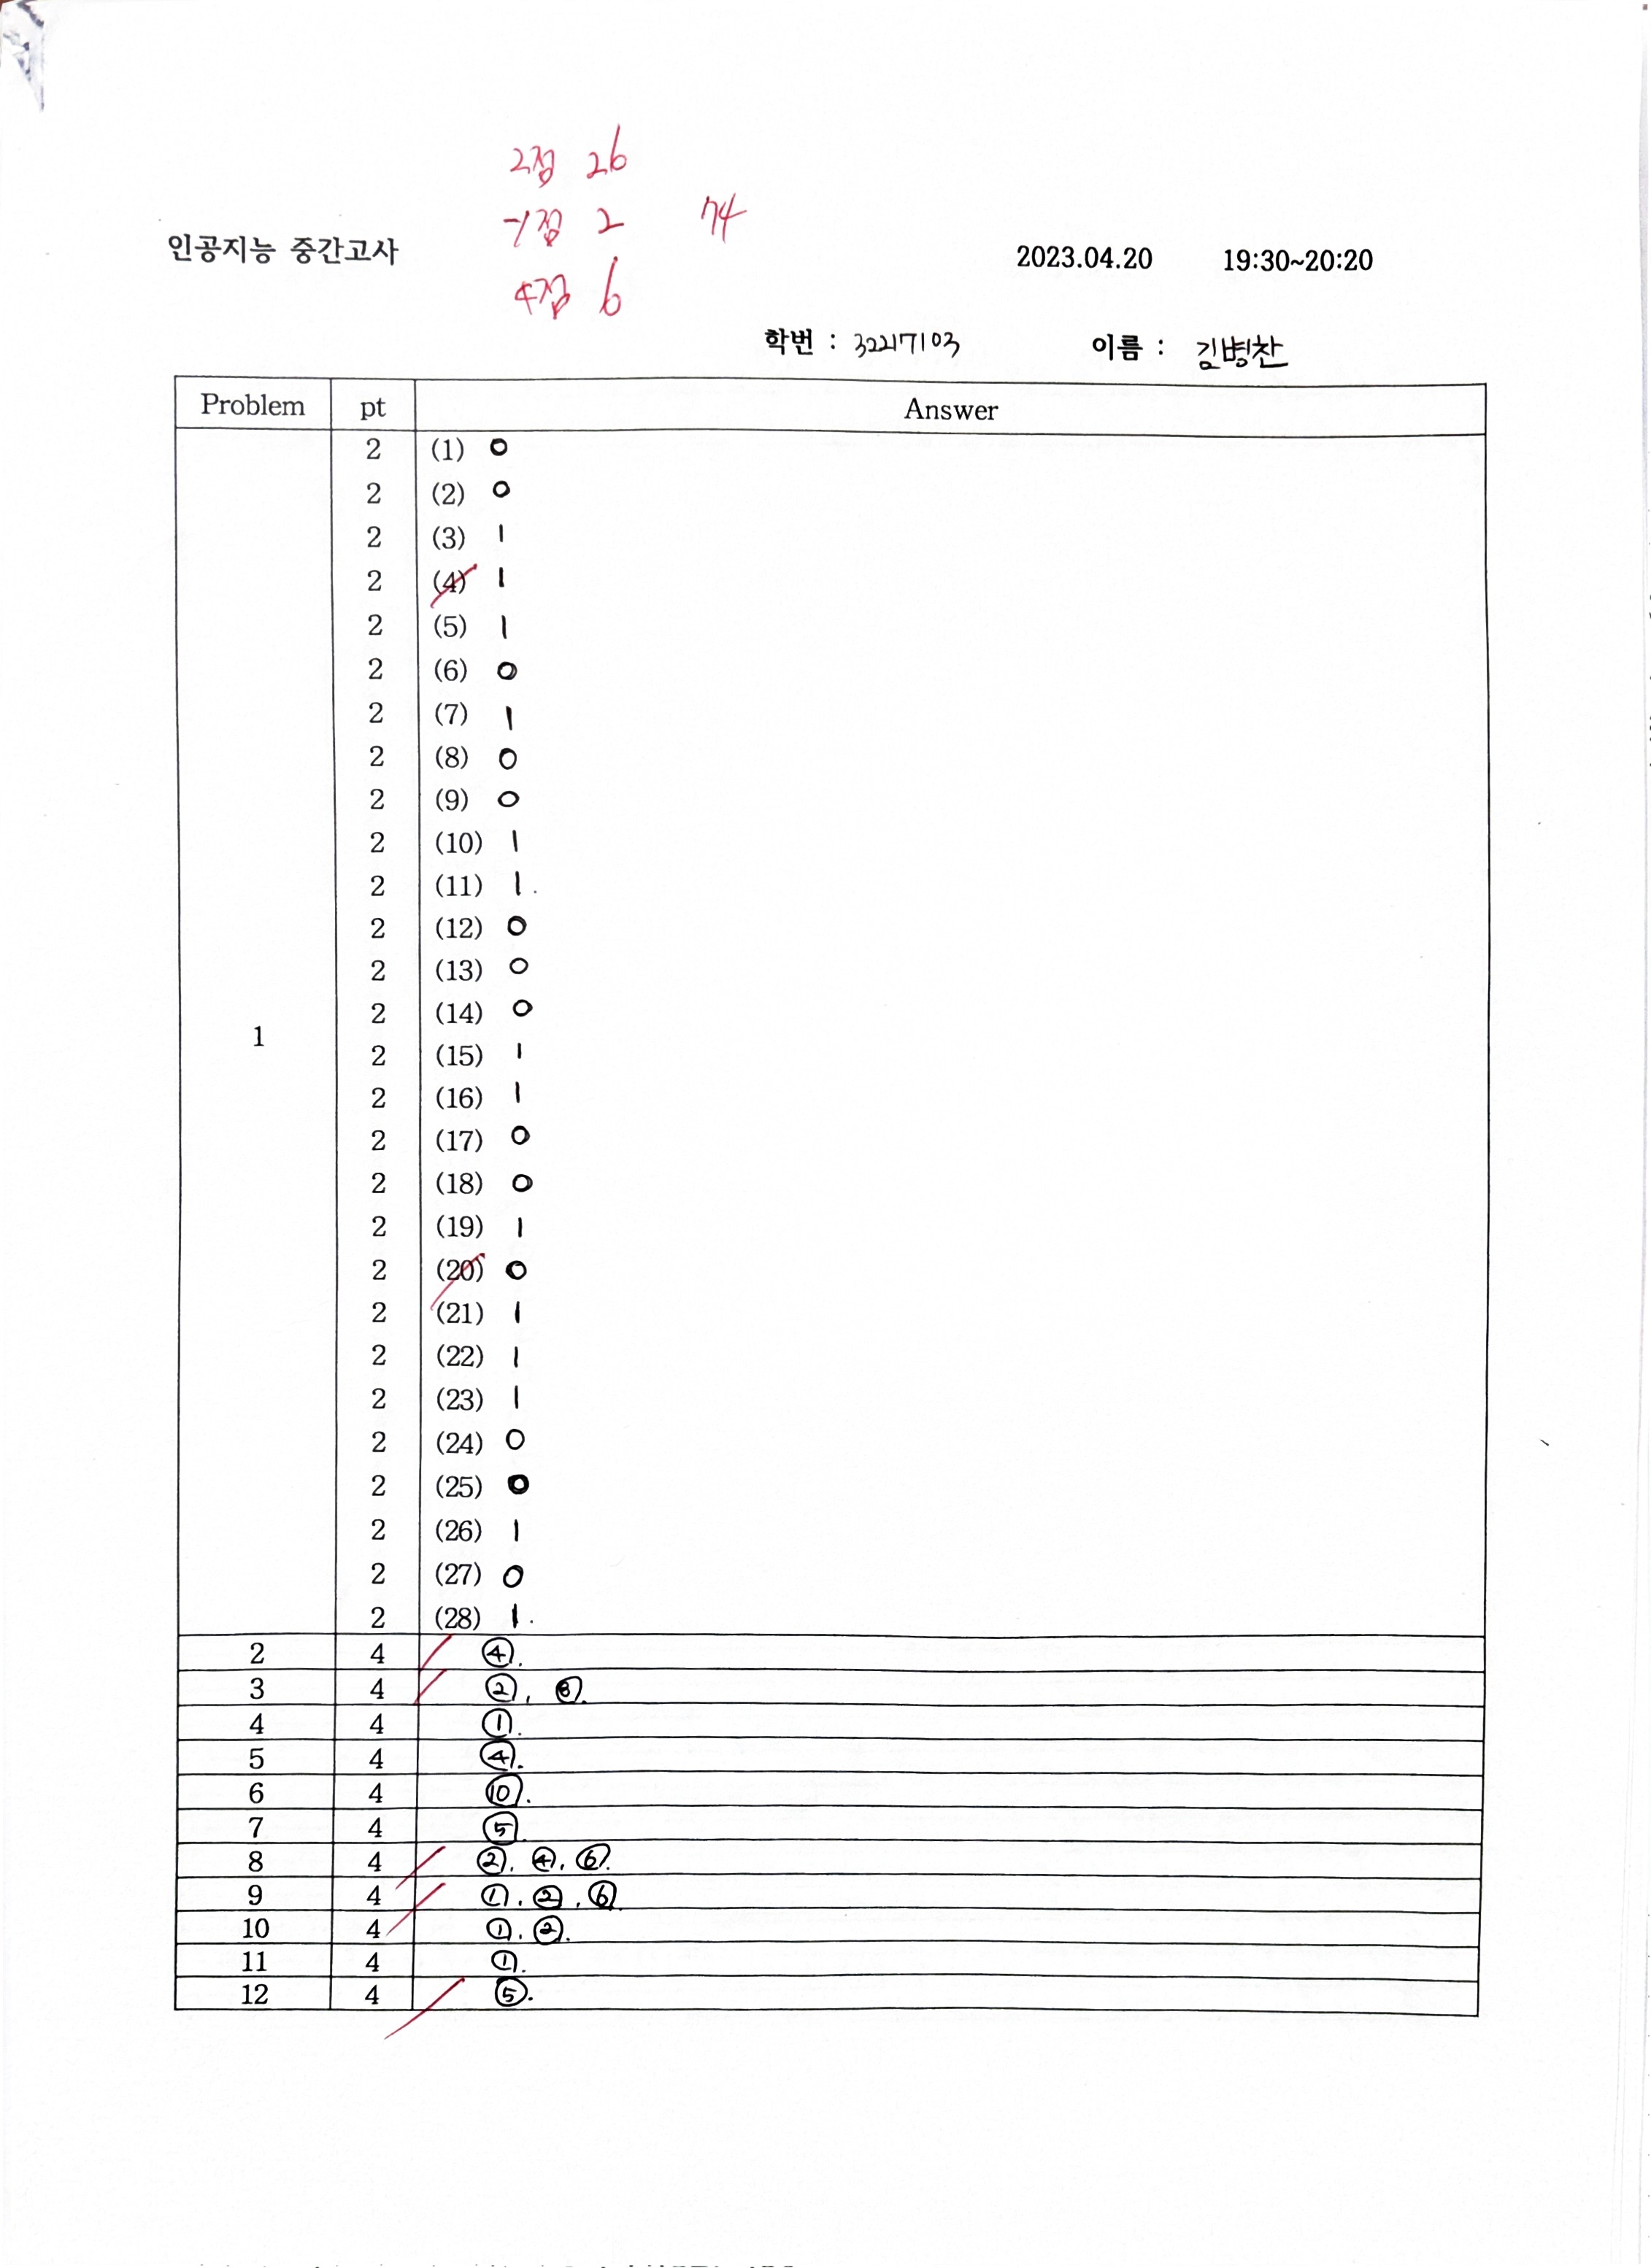 2점 26
-1점 2 74
4점 6
인공지능 중간고사 2023.04.20 19:30~20:20
학번 : 32217103 이름 : 김병찬
Problem pt Answer
2 (1) 0
2 (2) 0
2 (3) 1
2 (4) 1
2 (5) 1
2 (6) 0
2 (7) 1
2 (8) 0
2 (9) 0
2 (10) 1
2 (11) 1.
2 (12) 0
2 (13) 0
2 (14) 0
1
2 (15) 1
2 (16) 1
2 (17) 0
2 (18) 0
2 (19) 1
2 (20) 0
2 (21) 1
2 (22) 1
2 (23) 1
2 (24) 0
2 (25) 0
2 (26) 1
2 (27) 0
2 (28) 1.
2 4 ④.
3 4 ②, ⑧.
4 4 ①.
5 4 ④.
6 4 ⑩.
7 4 ⑤.
8 4 ②, ④, ⑥.
9 4 ①, ②, ⑥.
10 4 ①, ②.
11 4 ①.
12 4 ⑤.